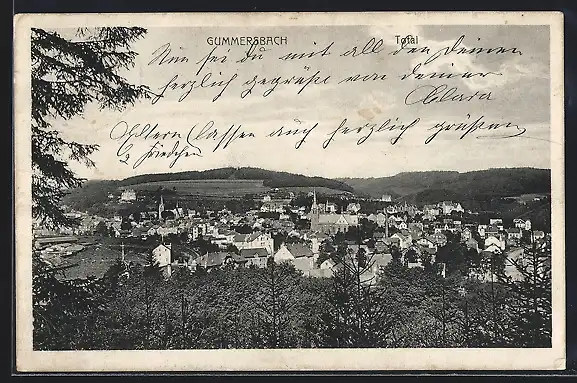 GUMMERSBACH Total
Nun sei du mit all den Deinen
herzlich gegrüßt von deiner
Clara
Eltern lassen auch herzlich grüßen
Friedchen